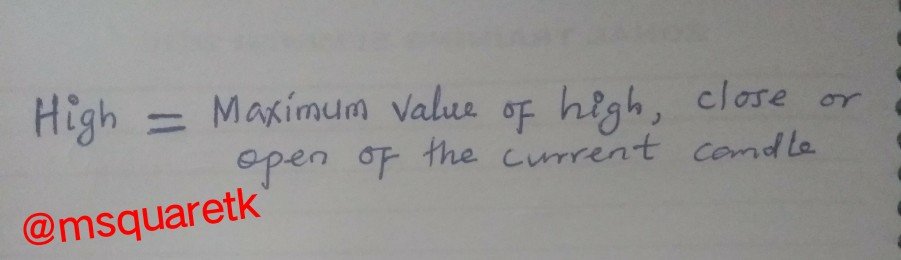 High = Maximum value of high, close or
open of the current candle
@msquaretk